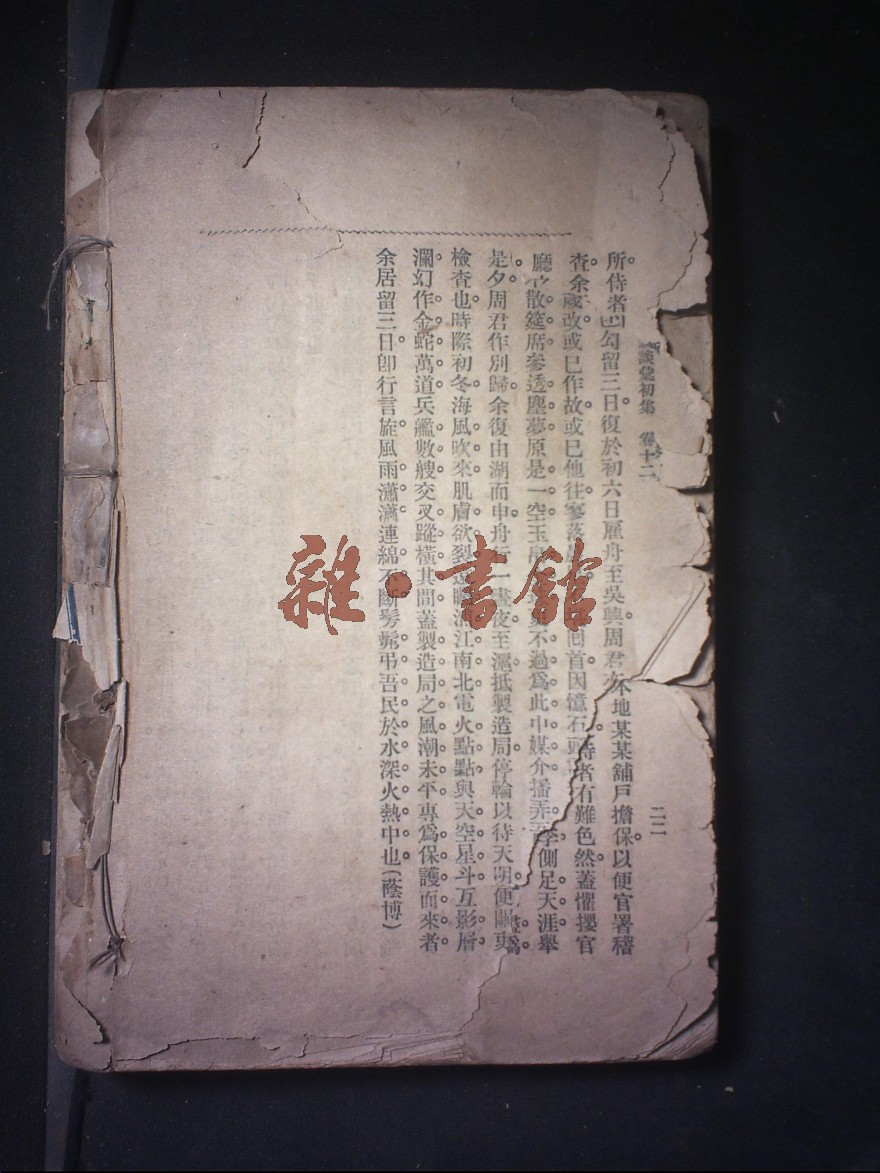 談彙初集　卷十二
二二
所侍者勾留三日。復於初六日雇舟至吳興。周君 本地某某舖戶擔保。以便官署稽
查。余 或改或已作故或已他往。寥落 回首因憶石 侍者有難色。然蓋懼攖官
廳 散筵席。參透塵夢。原是一空。玉 不過爲此中媒介播弄 側足天涯。舉
是夕。周君作別歸。余復由湖而申。舟行一晝夜至滬。抵製造局。停輪以待天明。便關吏 爲
檢查也。時際初冬。海風吹來。肌膚欲裂。 江南北。電火點點。與天空星斗互影。層
瀾幻作金蛇萬道。兵艦數艘。交叉蹤橫其間。蓋製造局之風潮未平。專爲保護而來者。
余居留三日。卽行言旋。風雨瀟瀟。連綿不斷。髣髴弔吾民於水深火熱中也。(蔭博)
雜·書館